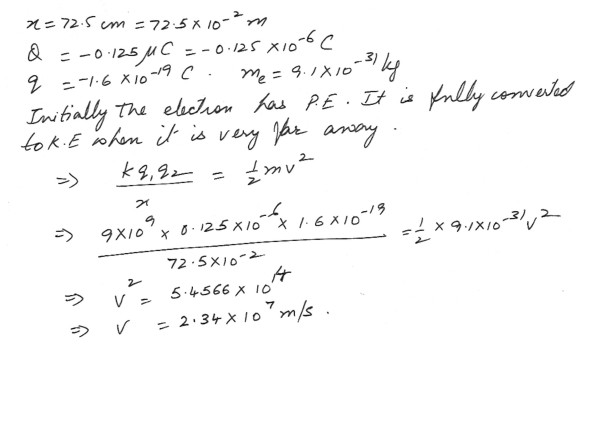 x = 72.5 cm = 72.5 × 10⁻² m
Q = -0.125 μC = -0.125 × 10⁻⁶ C
q = -1.6 × 10⁻¹⁹ C. mₑ = 9.1 × 10⁻³¹ kg
Initially The electron has P.E. It is fully converted
to K.E when it is very far away.
⇒ kq₁q₂ / x = ½ mv²
⇒ 9×10⁹ × 0.125 × 10⁻⁶ × 1.6 × 10⁻¹⁹ / 72.5 × 10⁻² = ½ × 9.1×10⁻³¹ v²
⇒ v² = 5.4566 × 10¹⁴
⇒ v = 2.34 × 10⁷ m/s.